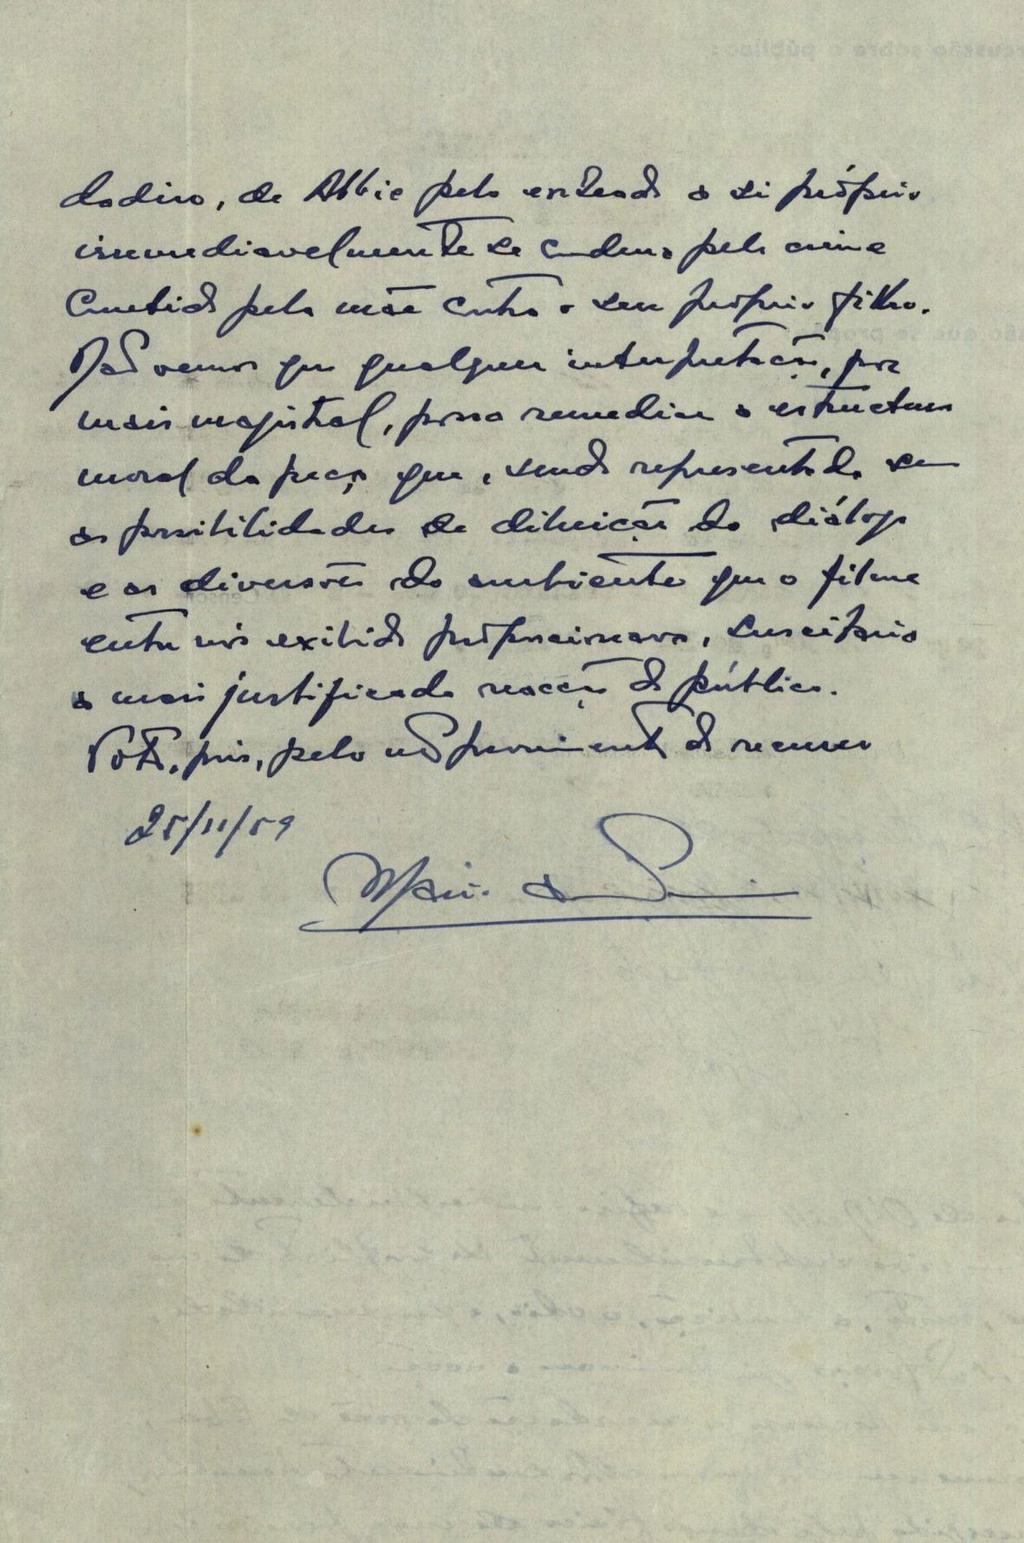 dadeiro, de Abbie pelo enteado a si próprio
irremediavelmente se condena pelo crime
cometido pela mãe contra o seu próprio filho.
Não vemos que qualquer interpretação, por
mais magistral, possa remediar a estructura
moral da peça que, sendo representada sem
as possibilidades de diluição do diálogo
e as diversões do ambiente que o filme
entre nós exibido proporcionava, suscitaria
a mais justificada reacção do público.
Voto, pois, pelo não provimento do recurso
25/11/59